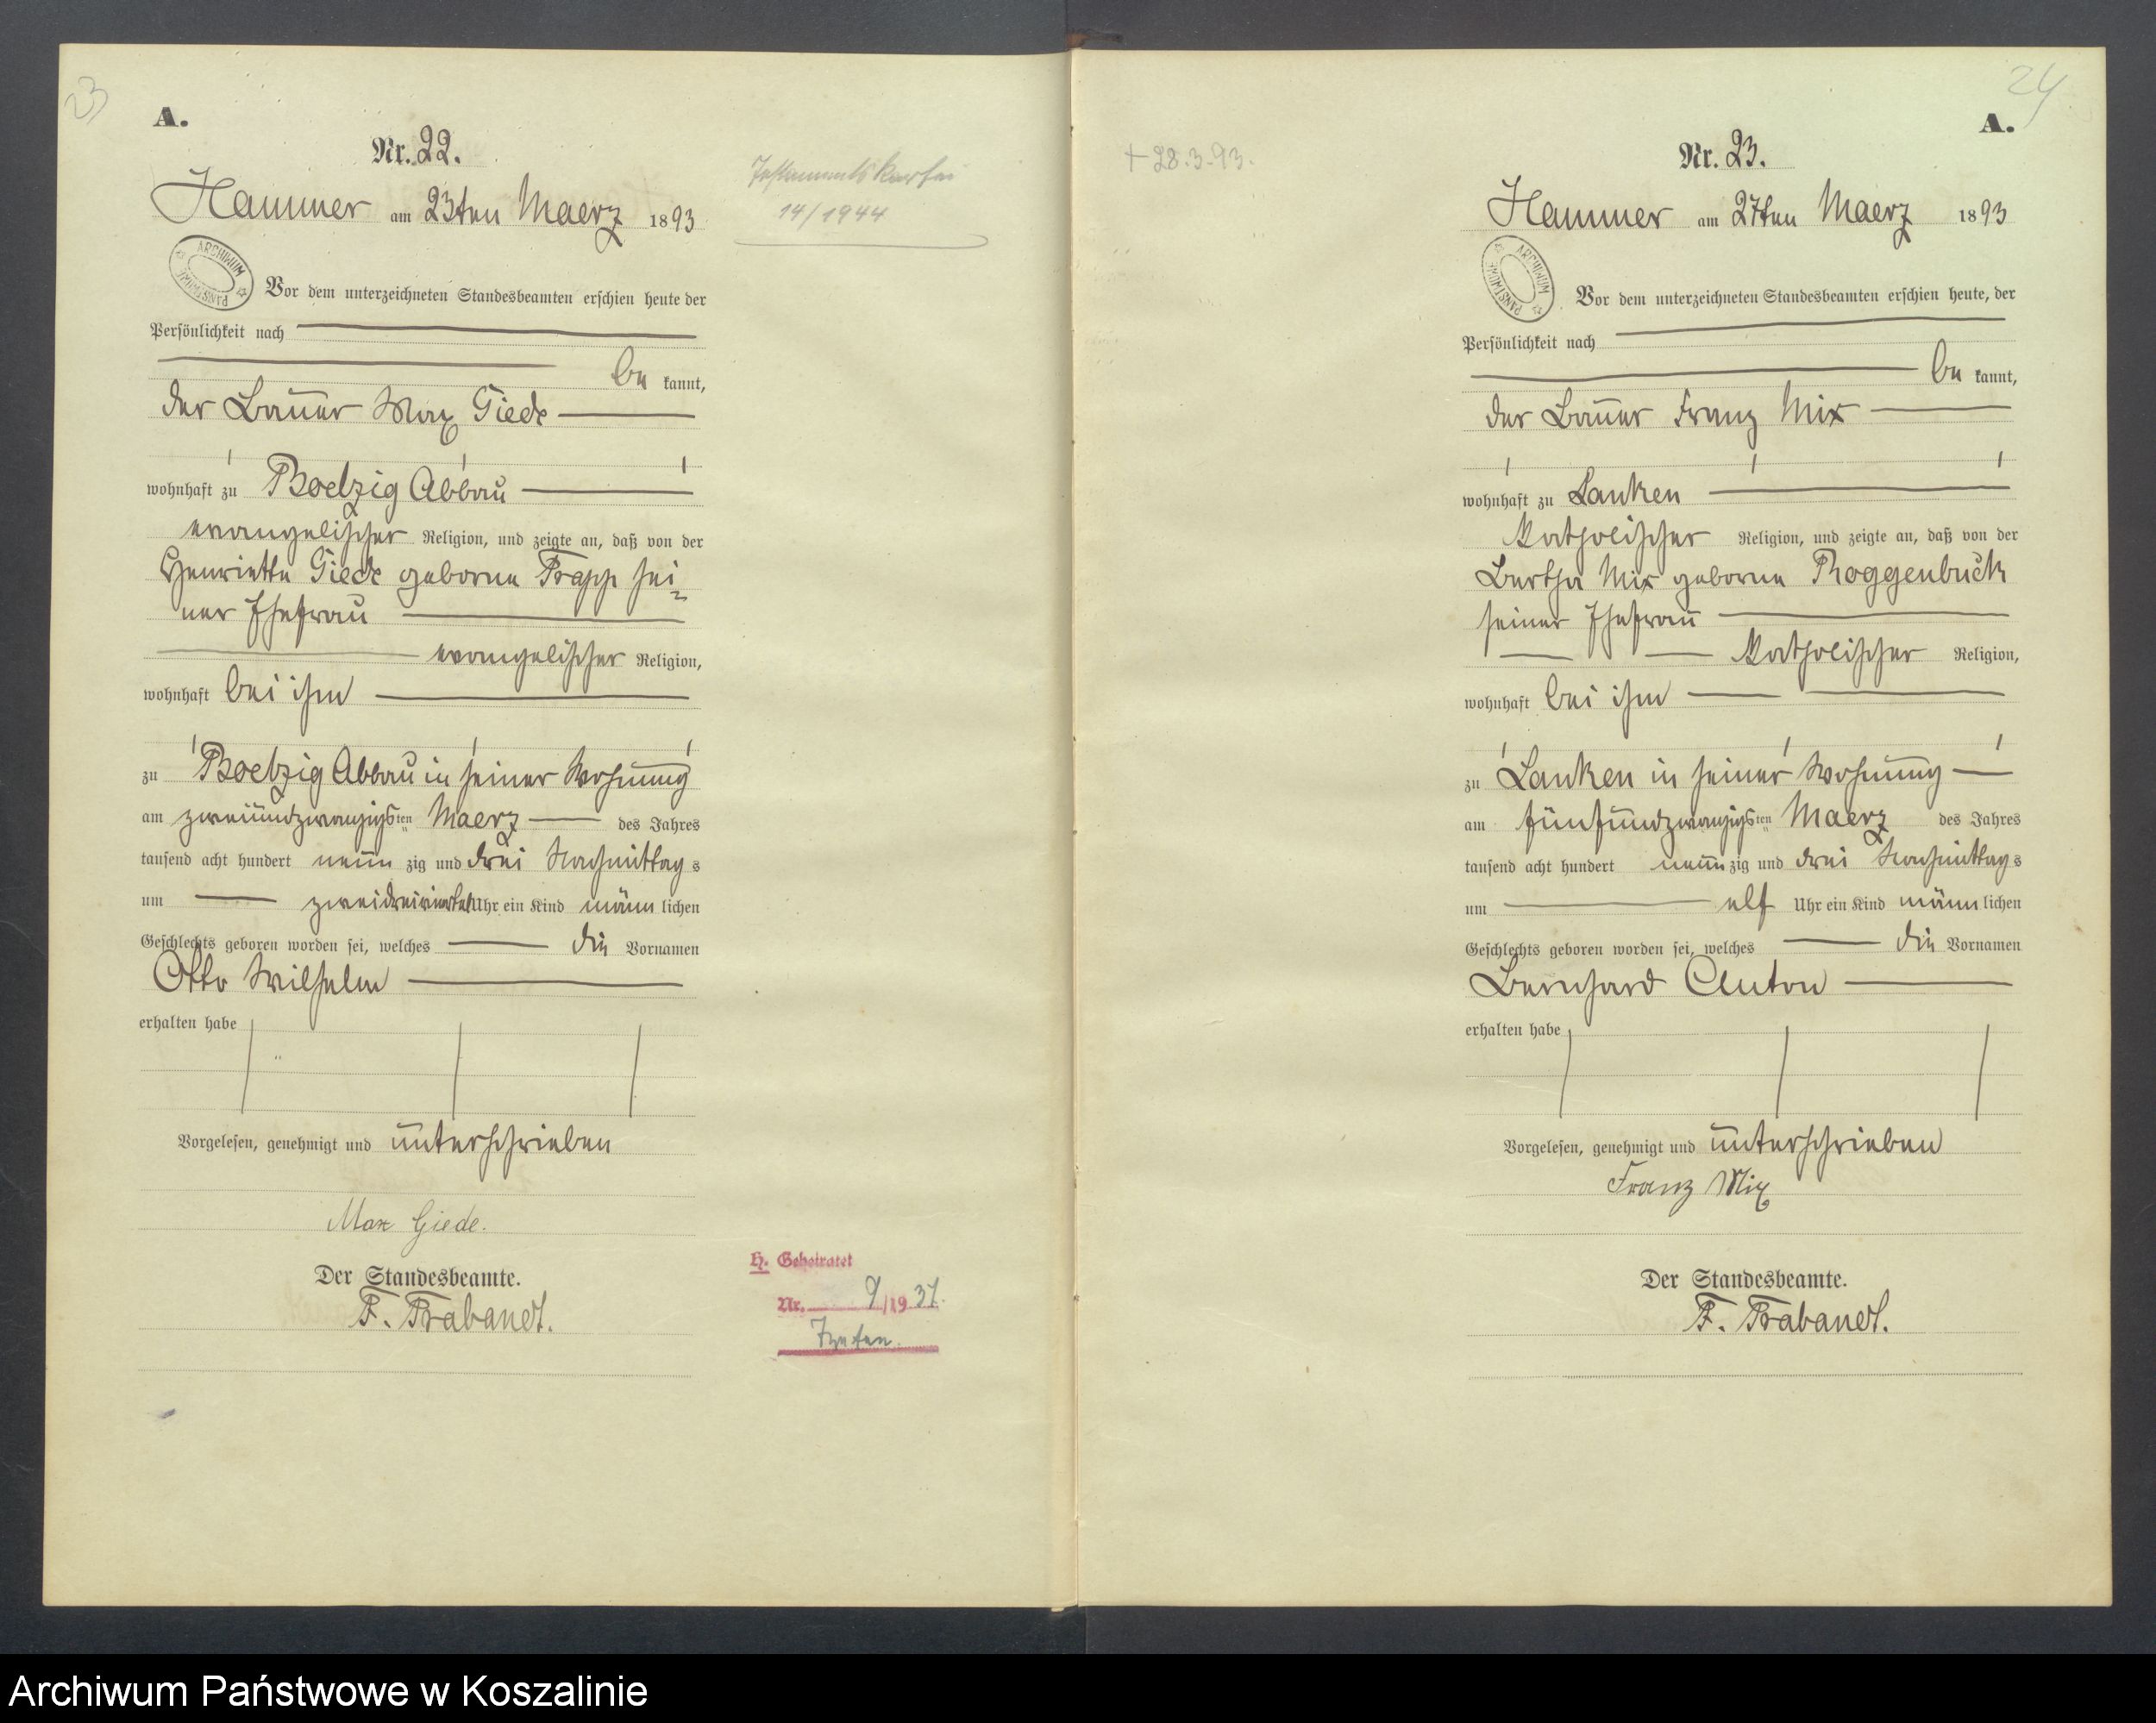 23
A.
Nr. 22.
Hammer am 23ten Maerz 1893
ARCHIWUM PAŃSTWOWE
Vor dem unterzeichneten Standesbeamten erschien heute der
Persönlichkeit nach
be kannt,
der Bauer Max Giede
wohnhaft zu Abbau
evangelischer Religion, und zeigte an, daß von der
Henriette Giede geborne Trapp sei=
ner Ehefrau
evangelischer Religion,
wohnhaft bei ihm
zu Abbau in seiner Wohnung
am zweiundzwanzigsten Maerz des Jahres
tausend acht hundert neun zig und drei Nachmittags
um zweidreiviertel Uhr ein Kind männlichen
Geschlechts geboren worden sei, welches die Vornamen
Otto Wilhelm
erhalten habe
Vorgelesen, genehmigt und unterschrieben
Max Giede.
Der Standesbeamte.
F. Trabandt.
Testamentskartei
14/1944
H. Geheiratet
Nr. 9/1937.
24
A.
+ 28.3.93.
Nr. 23.
Hammer am 27ten Maerz 1893
ARCHIWUM PAŃSTWOWE
Vor dem unterzeichneten Standesbeamten erschien heute, der
Persönlichkeit nach
be kannt,
der Bauer Franz Mix
wohnhaft zu Lanken
katholischer Religion, und zeigte an, daß von der
Bertha Mix geborne Roggenbuck
seiner Ehefrau
katholischer Religion,
wohnhaft bei ihm
zu Lanken in seiner Wohnung
am fünfundzwanzigsten Maerz des Jahres
tausend acht hundert neunzig und drei Nachmittags
um elf Uhr ein Kind männlichen
Geschlechts geboren worden sei, welches die Vornamen
Bernhard Anton
erhalten habe
Vorgelesen, genehmigt und unterschrieben
Franz Mix
Der Standesbeamte.
F. Trabandt.
Archiwum Państwowe w Koszalinie